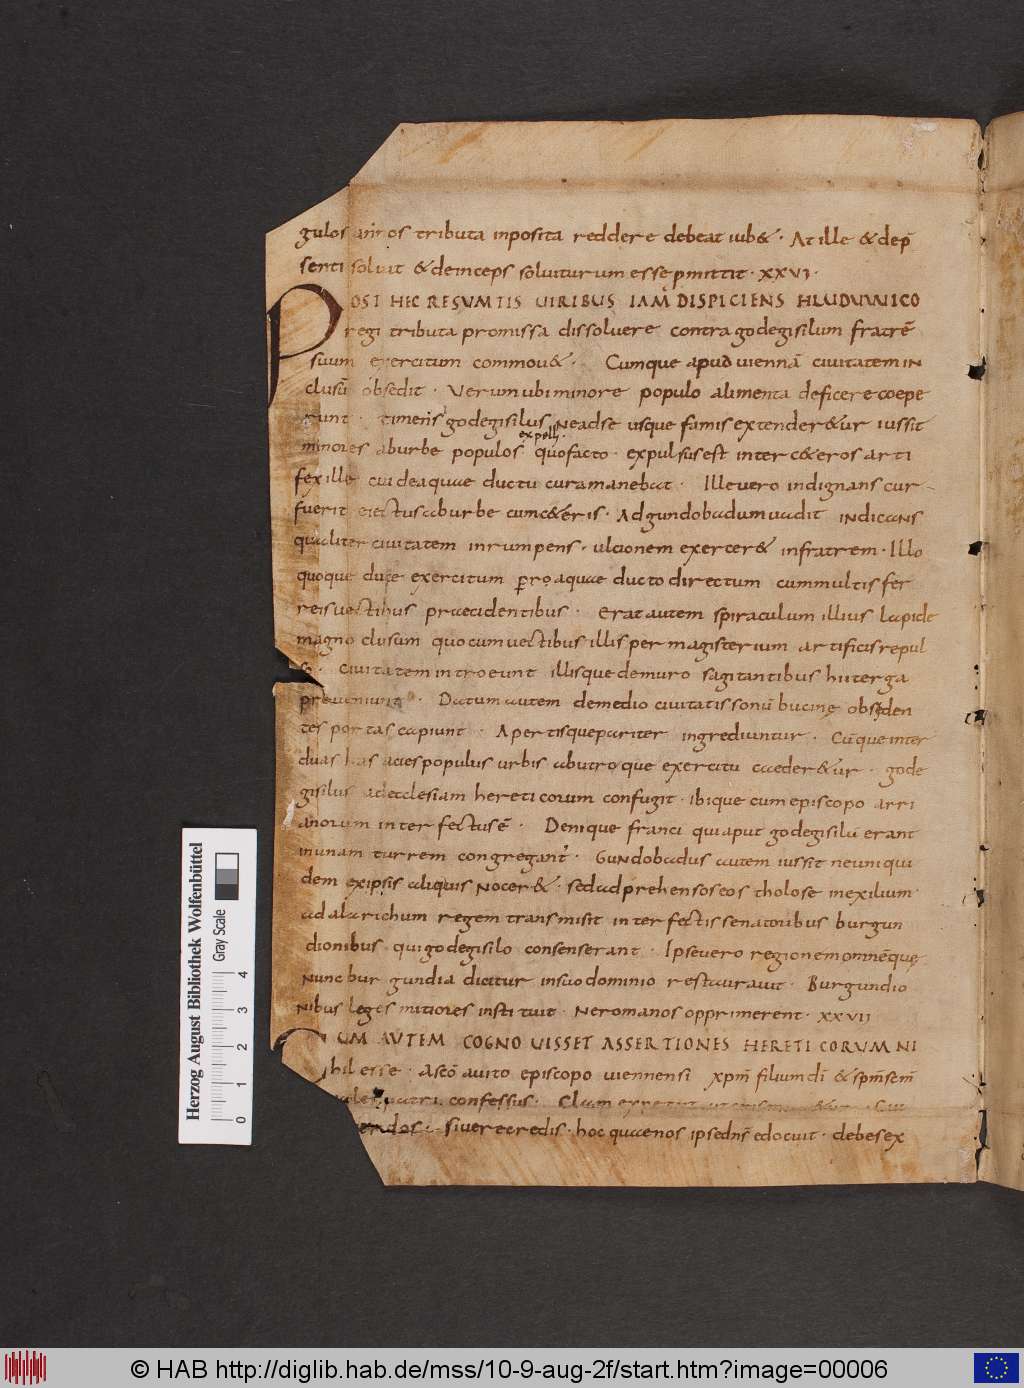 gulos annos tributa inposita reddere debeat iub&. At ille & dep̄
senti soluat & deinceps soluiturum esse pmittit. XXVI.
POST HEC RESUMTIS UIRIBUS IAM DISPICIENS HLUDUUUICO
regi tributa promissa dissoluere contra godegisilum fratrē
suum exercitum commou&. Cumque apud uiennā ciuitatem in
clusū obsedit. Verum ubi minore populo alimenta deficere coepe
runt. timens godegisilus ne ad se usque famis extender&ur iussit
expelli.
minores ab urbe populos quo facto. expulsus est inter c&eros arti
fex ille cui de aquae ductu cura manebat. Ille uero indignans cur
fuerit eiectus ab urbe cum c&eris. Ad gundobadum uadit indicans
qualiter ciuitatem inrumpens. ulcionem exercer& in fratrem. Illo
quoque duce exercitum pro aquae ducto directum cum multis fer
reis uectibus praecidentibus. Erat autem spiraculum illius lapide
magno clusum quo cum uectibus illis per magisterium artificis repul
so. ciuitatem introeunt illisque de muro sagitantibus hii terga
preueniunt. Datum autem de medio ciuitatis sonū bucinę obseden
tes portas capiunt. Apertisque pariter ingrediuntur. Cūque inter
duas has acies populus urbis ab utroque exercitu caeder&ur. gode
gisilus ad ecclesiam hereticorum confugit. ibique cum episcopo arri
anorum interfectus ē. Denique franci qui aput godegisilū erant
in unam turrem congregant. Gundobadus autem iussit ne uni qui
dem ex ipsis aliquis nocer&. sed adprehensos eos tholose in exilium
ad alarichum regem transmisit interfectis senatoribus burgun
dionibus qui godegisilo consenserant. Ipse uero regionem omnēque
nunc burgundia dicitur in suo dominio restaurauit. Burgundio
nibus leges mitiores instituit. ne romanos opprimerent. XXVII
CUM AUTEM COGNOUISSET ASSERTIONES HERETICORUM NI
hil esse. Ascō auito episcopo uiennensi xpm̄ filium dī & spm̄ scm̄
patri confessus. Clam
si uere credis. hoc quae nos ipse dn̄s edocuit. debes ex
Herzog August Bibliothek Wolfenbüttel
Gray Scale
0 1 2 3 4
© HAB http://diglib.hab.de/mss/10-9-aug-2f/start.htm?image=00006